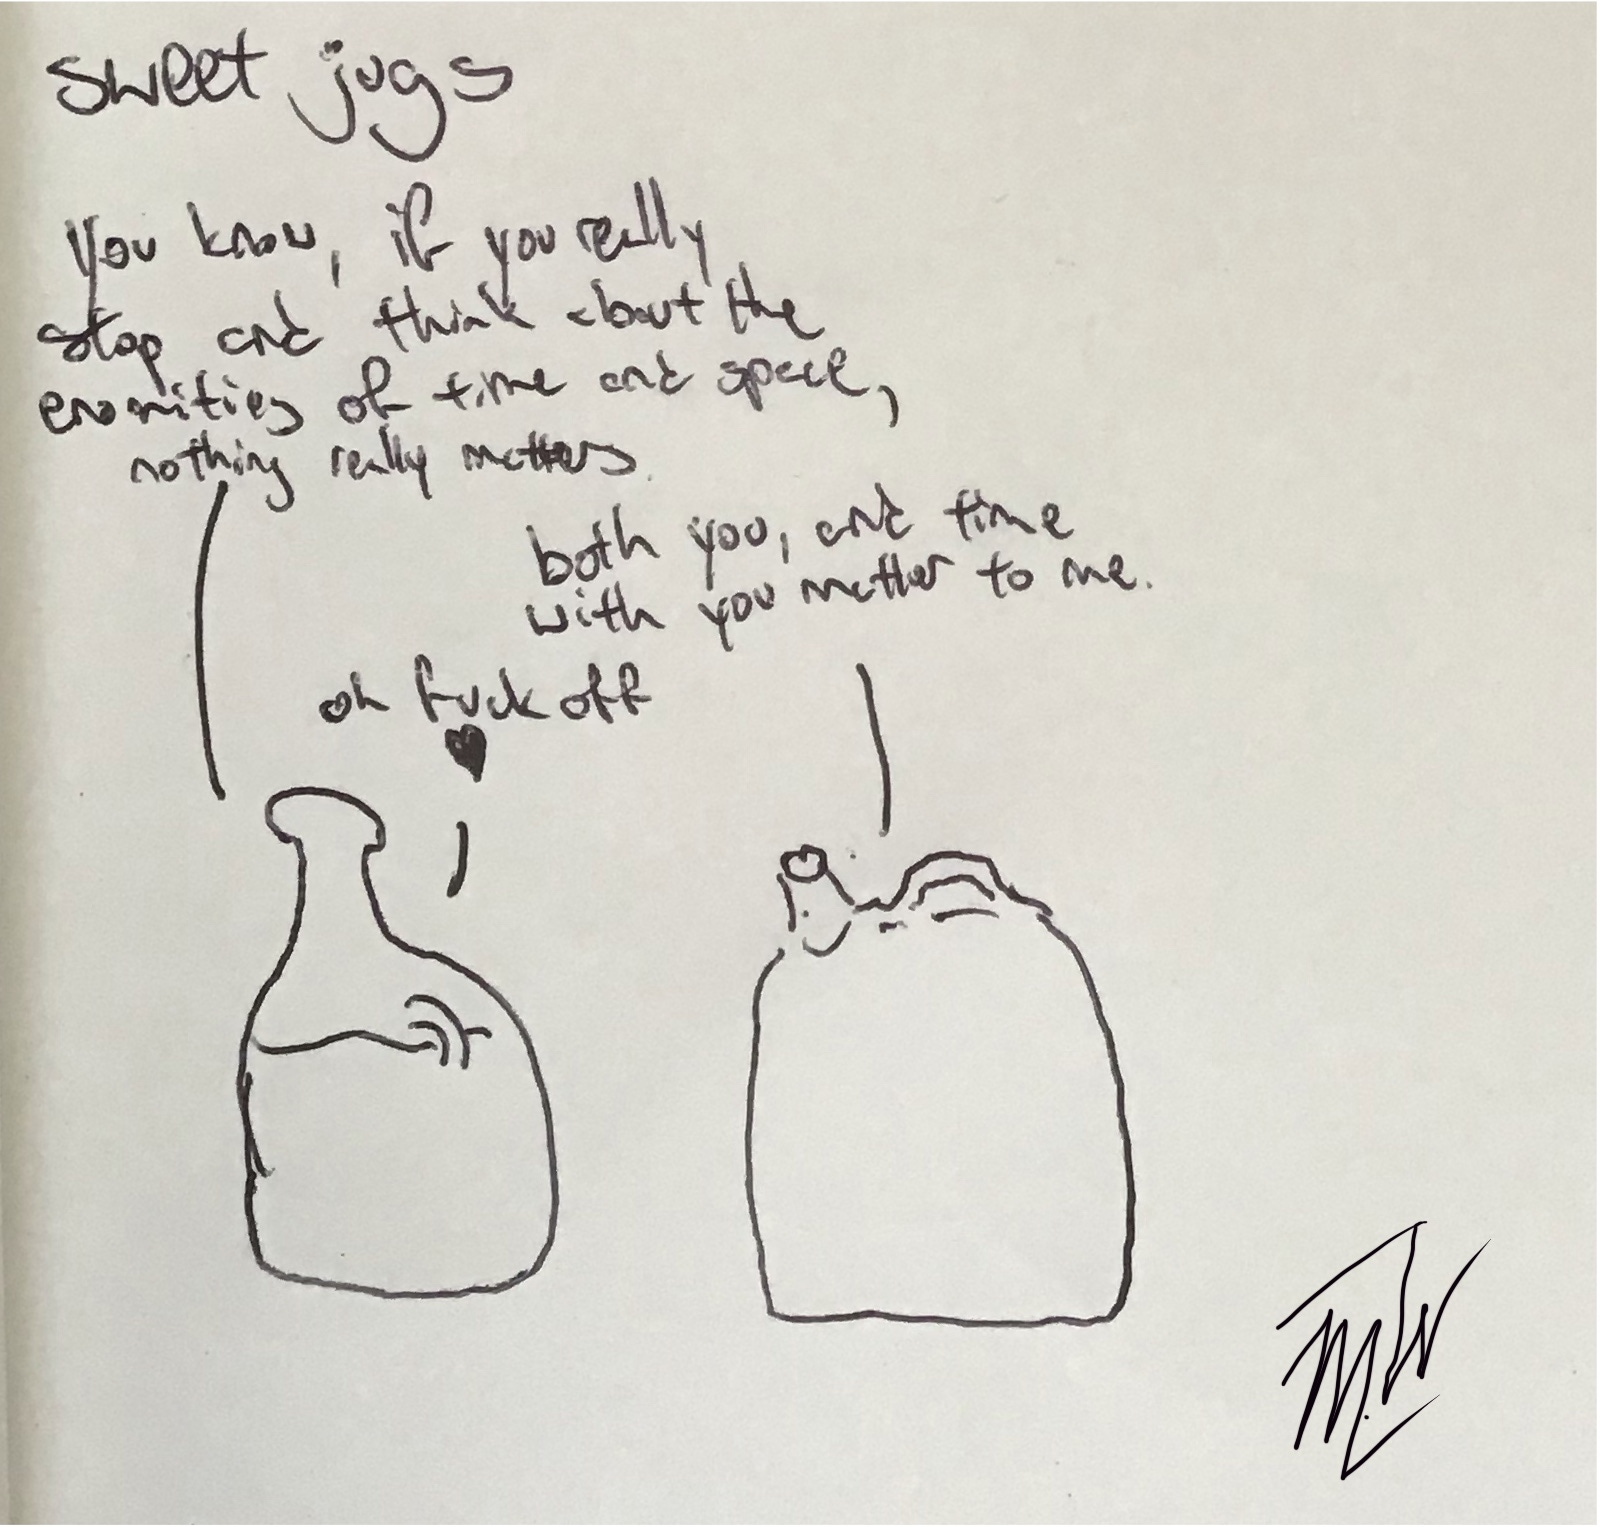 sweet jugs
you know, if you really
stop and think about the
enormities of time and space,
nothing really matters.
both you, and time
with you matter to me.
oh fuck off
♥
M.W